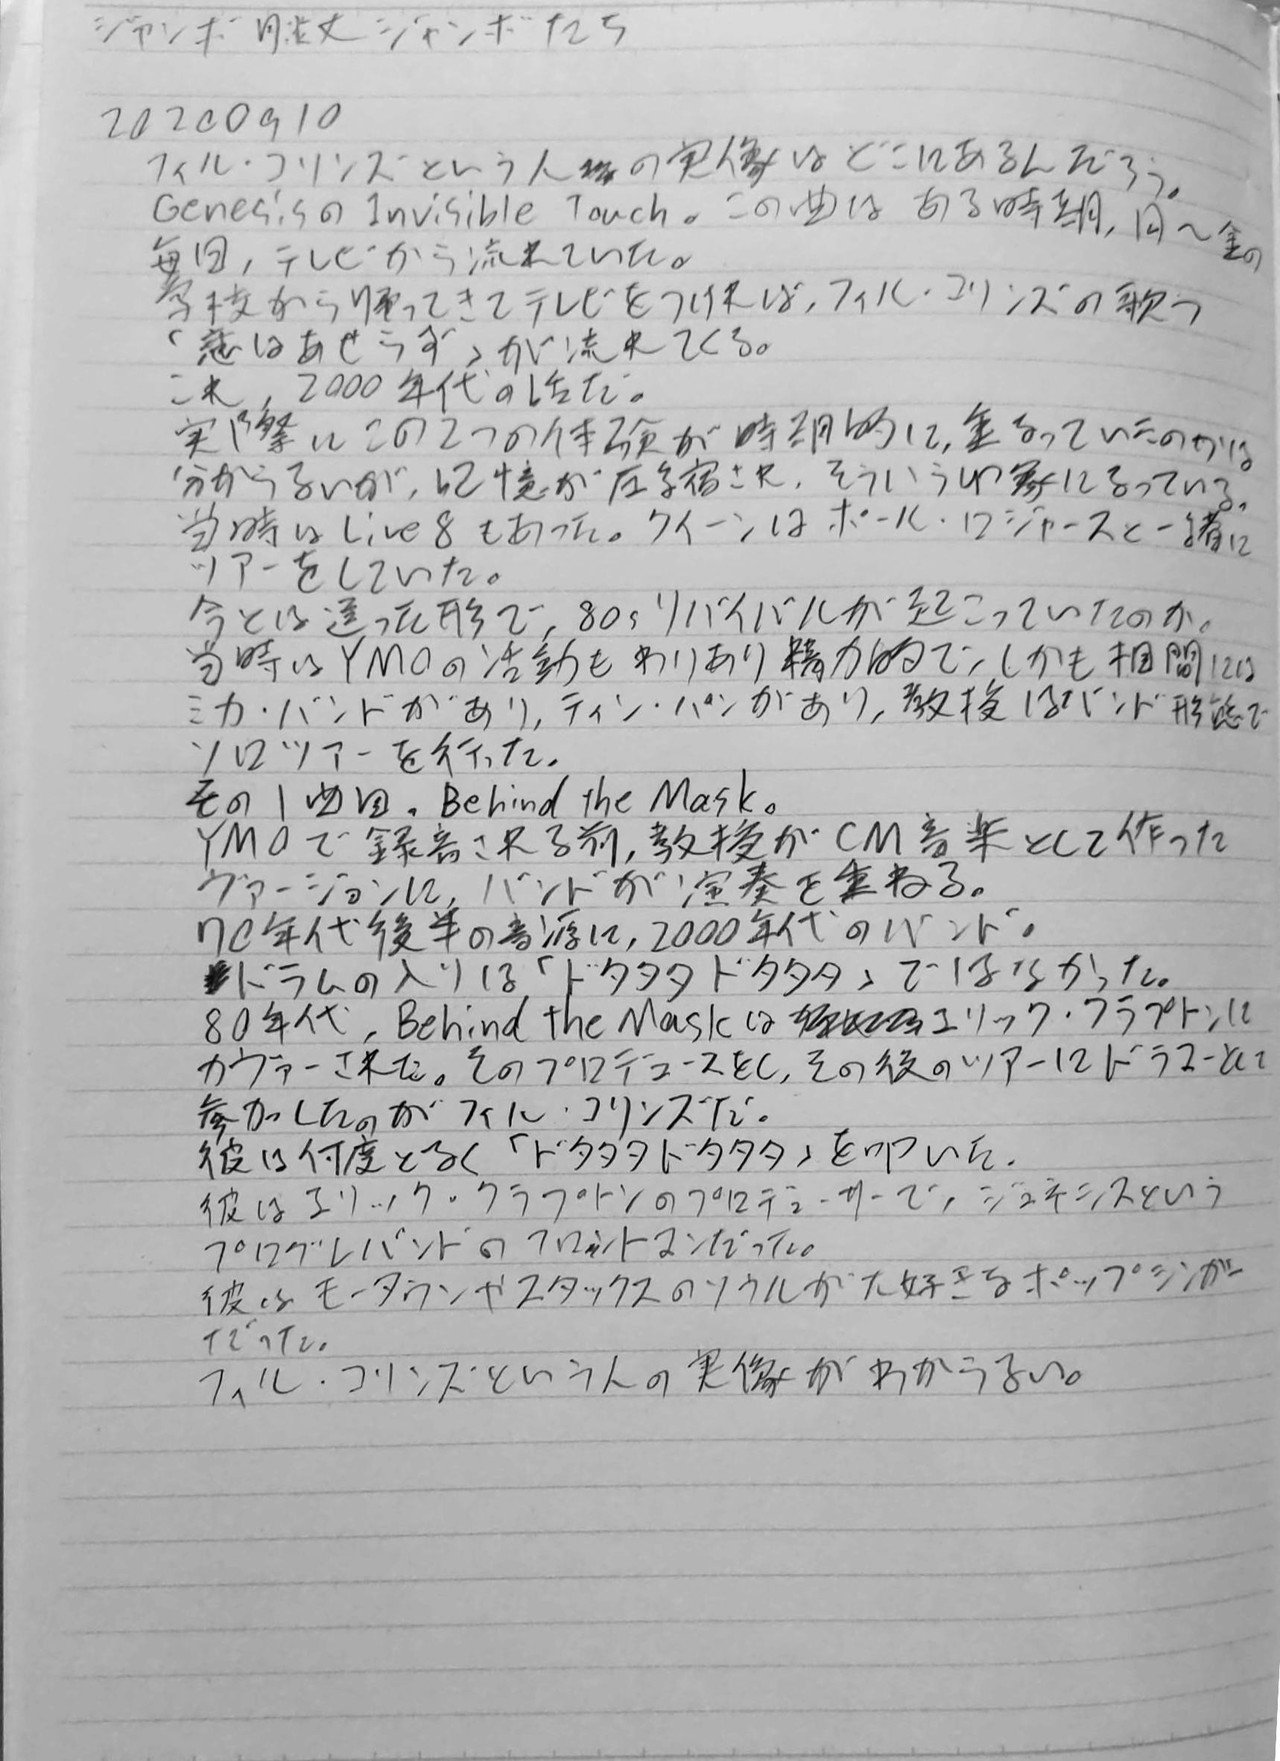 ジャンボ 月 ジャンボたち
20200910
フィル・コリンズという人の実像はどこにあるんだろう。
GenesisのInvisible Touch。この曲はある時期,月〜金の
毎日,テレビから流れていた。
学校から帰ってきてテレビをつければ,フィル・コリンズの歌う
「恋はあせらず」が流れてくる。
これ,2000年代の話だ。
実際にこの2つの体験が時期的に,重なっていたのかは
分からないが,記憶が圧縮され,そういう印象になっている。
当時はLive8もあった。クイーンはポール・ロジャースと一緒に
ツアーをしていた。
今とは違った形で,80sリバイバルが起こっていたのか。
当時はYMOの活動もわりあり精力的で,しかも相間には
ミカ・バンドがあり,ティン・パンがあり,教授はバンド形態で
ソロツアーを行った。
その1曲目。Behind the Mask。
YMOで録音される前,教授がCM音楽として作った
ヴァージョンに,バンドが演奏を重ねる。
70年代後半の音源に,2000年代のバンド。
ドラムの入りは「ドタタタドタタタ」ではなかった。
80年代,Behind the Maskはエリック・クラプトンに
カヴァーされた。そのプロデュースをし,その後のツアーにドラマーとして
参加したのがフィル・コリンズだ。
彼は何度となく「ドタタタドタタタ」を叩いた。
彼はエリック・クラプトンのプロデューサーで,ジェネシスという
プログレバンドのフロントマンだった。
彼はモータウンやスタックスのソウルが大好きなポップシンガー
だった。
フィル・コリンズという人の実像がわからない。